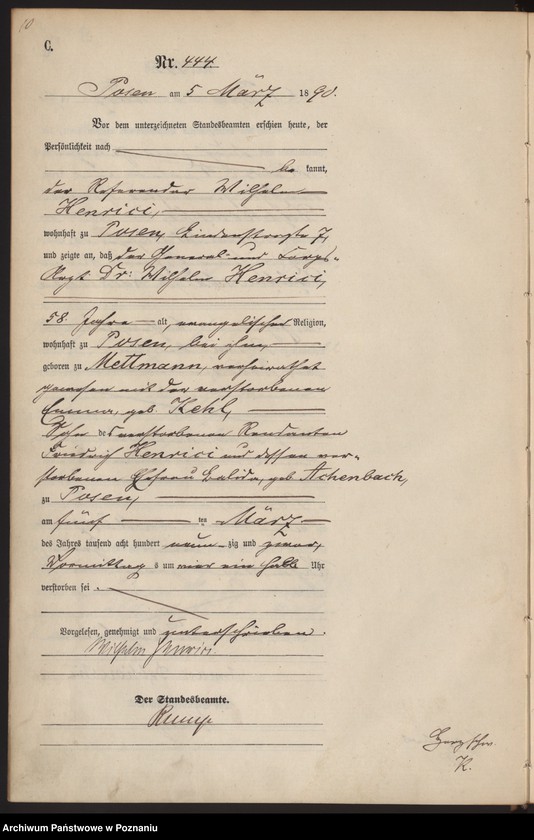 10
C.
Nr. 444.
Posen am 5 März 1890.
Vor dem unterzeichneten Standesbeamten erschien heute, der
Persönlichkeit nach
be kannt,
der Referendar Wilhelm
Henrici,
wohnhaft zu Posen, Lindenstraße 7,
und zeigte an, daß der General- und Corps-
Arzt Dr: Wilhelm Henrici,
58 Jahre alt, evangelischer Religion,
wohnhaft zu Posen, bei ihm,
geboren zu Mettmann, verheirathet
gewesen mit der verstorbenen
Emma, geb. Kehl,
Sohn des verstorbenen Rendanten
Friedrich Henrici und dessen ver-
storbenen Ehefrau geb Achenbach,
zu Posen,
am fünf ten März
des Jahres tausend acht hundert neun zig und zwar,
Vormittag s um vier ein halb Uhr
verstorben sei.
Vorgelesen, genehmigt und unterschrieben.
Wilhelm Henrici.
Der Standesbeamte.
K.
Archiwum Państwowe w Poznaniu